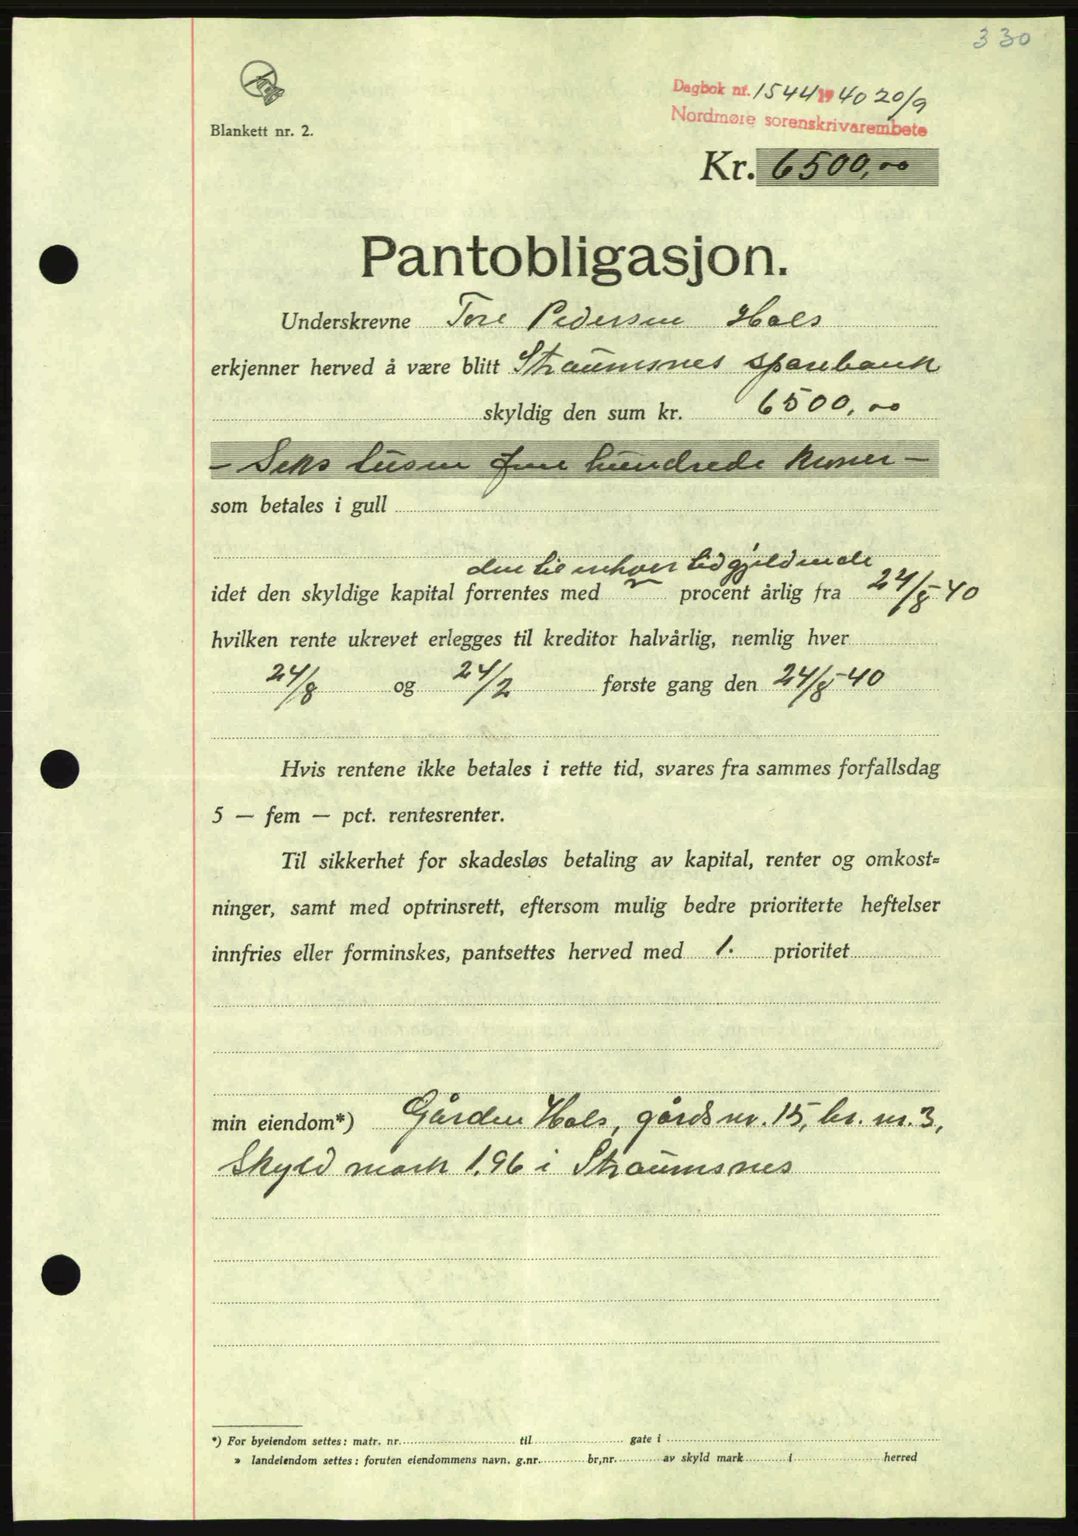 330
Dagbok nr. 1544 1940 20/9
Nordmøre sorenskrivarembete
Blankett nr. 2.
Kr. 6500,00
Pantobligasjon.
Underskrevne Tore Pedersen Hals
erkjenner herved å være blitt Straumsnes sparebank
skyldig den sum kr. 6500,00
- Seks tusen fem hundrede kroner -
som betales i gull
den til enhver tid gjeldende
idet den skyldige kapital forrentes med procent årlig fra 24/8-40
hvilken rente ukrevet erlegges til kreditor halvårlig, nemlig hver
24/8 og 24/2 første gang den 24/8-40
Hvis rentene ikke betales i rette tid, svares fra sammes forfallsdag
5 — fem — pct. rentesrenter.
Til sikkerhet for skadesløs betaling av kapital, renter og omkost=
ninger, samt med optrinsrett, eftersom mulig bedre prioriterte heftelser
innfries eller forminskes, pantsettes herved med 1. prioritet
min eiendom*) Gården Hals, gårdsnr. 15, br. nr. 3,
Skyld mark 1,96 i Straumsnes
*) For byeiendom settes: matr. nr. til gate i
» landeiendom settes: foruten eiendommens navn. g.nr. br,nr. av skyld mark i herred